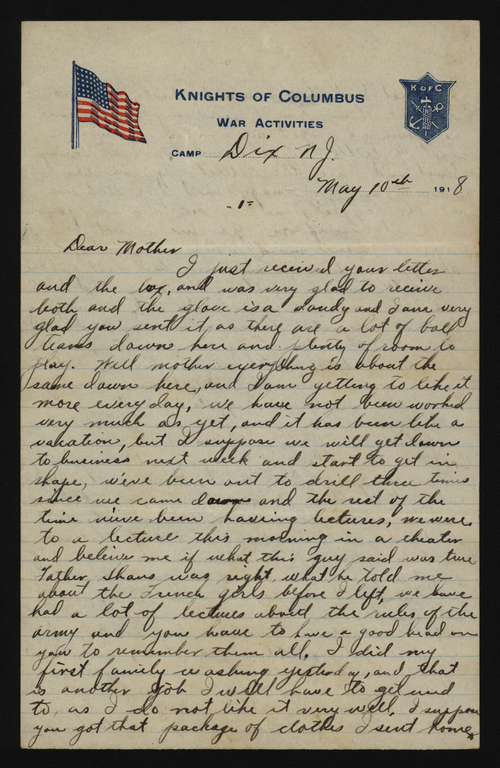 K OF C
KNIGHTS OF COLUMBUS
WAR ACTIVITIES
CAMP Dix N J.
May 10th 1918
-1-
Dear Mother
I just received your letter
and the box, and was very glad to receive
both and the glove is a dandy and I am very
glad you sent it, as there are a lot of ball
teams down here and plenty of room to
play. Well mother everything is about the
same down here, and I am getting to like it
more every day, we have not been worked
very much as yet, and it has been like a
vacation, but I suppose we will get down
to business next week and start to get in
shape, we've been out to drill three times
since we came down and the rest of the
time we've been having lectures, we were
to a lecture this morning in a theater
and beleive me if what this guy said was true
Father Shaws was right what he told me
about the French girls before I left, we have
had a lot of lectures about the rules of the
army and you have to have a good head on
you to remember them all. I did my
first family washing yesterday, and that
is another job I will have to get used
to, as I do not like it very well, I suppose
you got that package of clothes I sent home